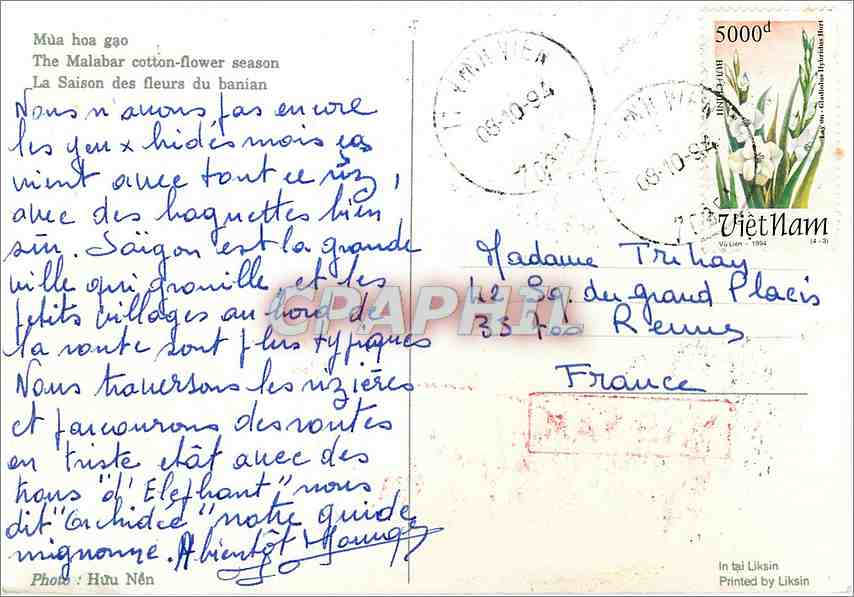 Mùa hoa gạo
The Malabar cotton-flower season
La Saison des fleurs du banian
Nous n'avons pas encore
les yeux bidés mais ças
vient avec tout ce riz,
avec des baguettes bien
sûr. Saïgon est la grande
ville qui grouille, et les
petits villages au bord de
la route sont plus typiques
Nous traversons les rizières
et parcourons des routes
en triste etât avec des
trous "d'Elephant" nous
dit "Orchidée" notre guide
mignonne. A bientôt
Photo : Hữu Nền
5000đ
BƯU CHÍNH
Lay ơn - Gladiolus Hybridus Hort
ViệtNam
Vũ Liên - 1994 (4-3)
08-10-94
08-10-94
Madame Trihay
42 Sq. du grand Placis
35 Rennes
France
CPAPHIL
MAY BAY
In tại Liksin
Printed by Liksin